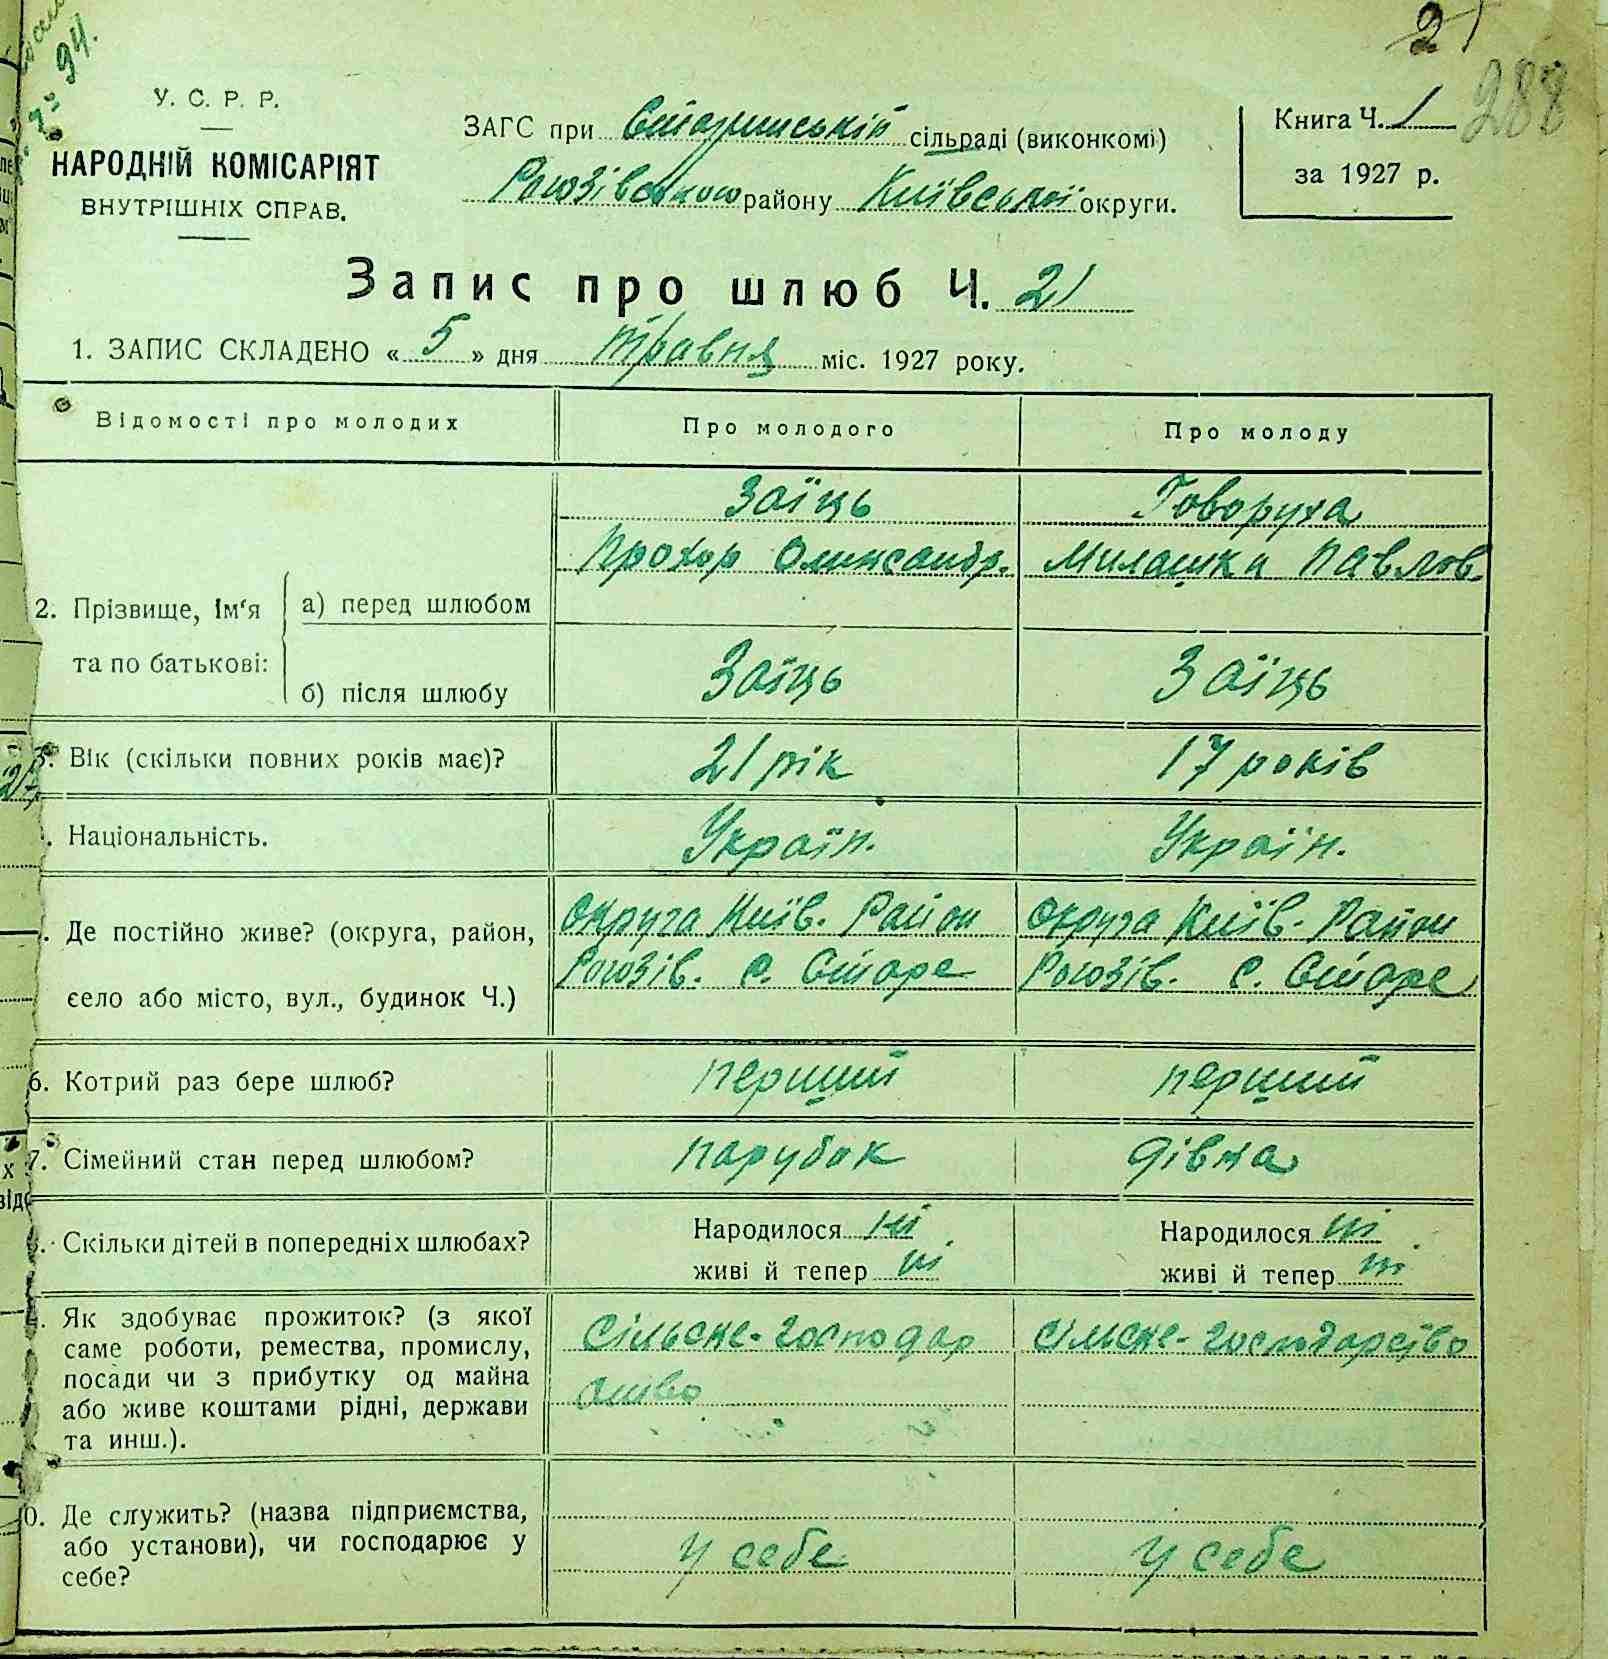 21
288
У. С. Р. Р.
НАРОДНІЙ КОМІСАРІЯТ
ВНУТРІШНІХ СПРАВ.
ЗАГС при Старинській сільраді (виконкомі)
Рогозівського району Київської округи.
Книга Ч. 1
за 1927 р.
Запис про шлюб Ч. 21
1. ЗАПИС СКЛАДЕНО « 5 » дня травня міс. 1927 року.
Відомості про молодих Про молодого Про молоду
2. Прізвище, Ім'я та по батькові:
а) перед шлюбом
Заїць
Прохор Олександр.
Говоруха
Милашка Павлов.
б) після шлюбу
Заїць Заїць
3. Вік (скільки повних років має)? 21 рік 17 років
. Національність. Україн. Україн.
. Де постійно живе? (округа, район,
село або місто, вул., будинок Ч.)
округа Київ. Район
Рогозів. с. Старе
округа Київ. Район
Рогозів. с. Старе
6. Котрий раз бере шлюб? перший перший
7. Сімейний стан перед шлюбом? парубок дівка
. Скільки дітей в попередніх шлюбах?
Народилося ні
живі й тепер ні
Народилося ні
живі й тепер ні
. Як здобуває прожиток? (з якої
саме роботи, ремества, промислу,
посади чи з прибутку од майна
або живе коштами рідні, держави
та инш.).
Сільське-господар
ство
Сільське-господарство
0. Де служить? (назва підприємства,
або установи), чи господарює у
себе?
у себе у себе